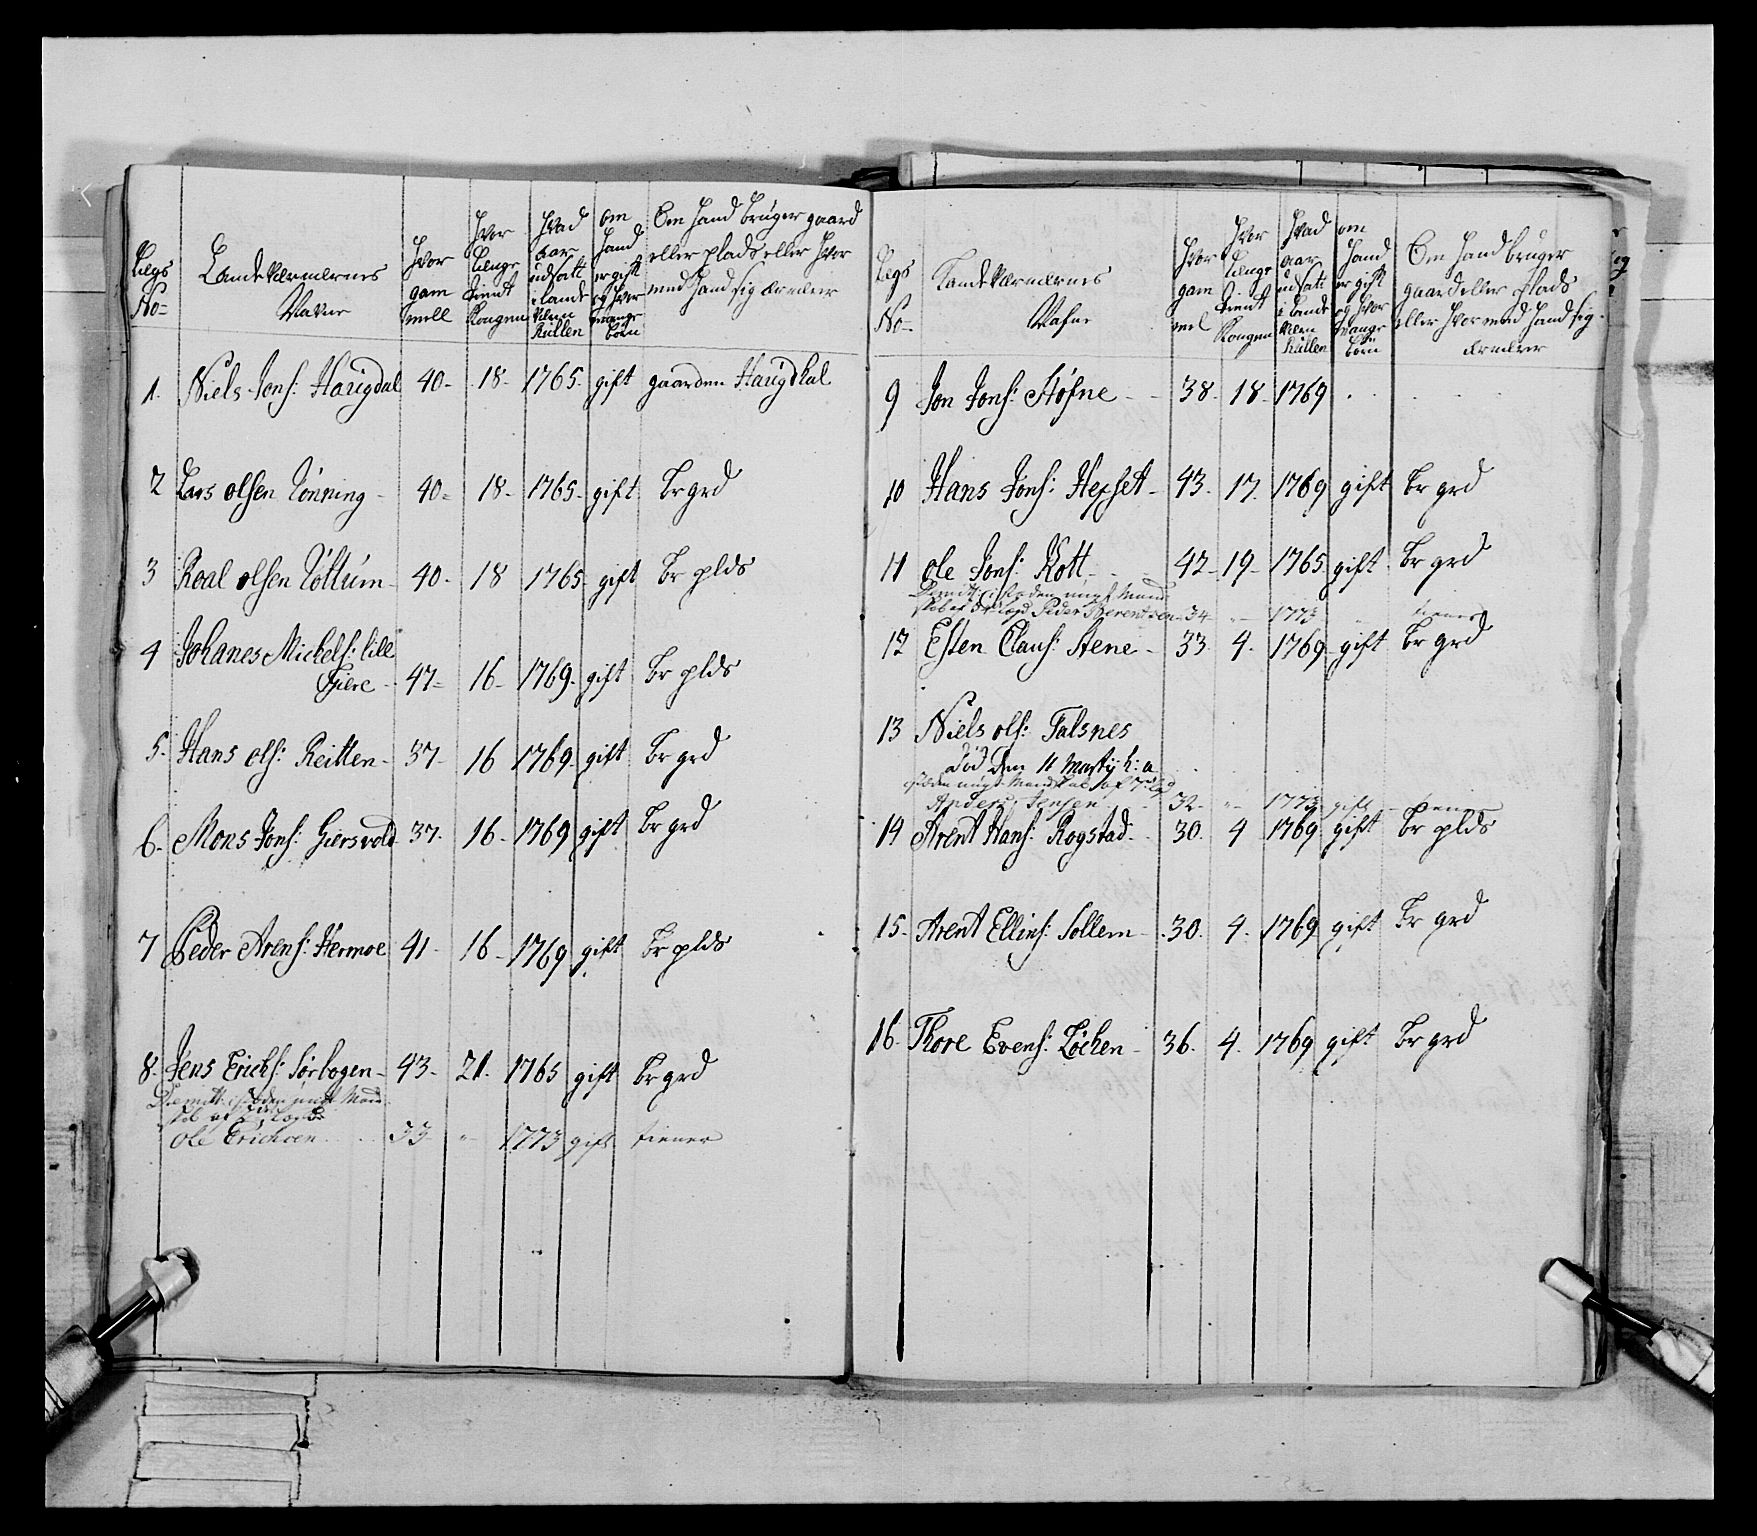 Legs
No=
Landeværnernes
Nafne
Hvor
gam
mell
Hvor
lenge
tient
Kongen
Hvad
aar
udsatt
i Lande
værn
Rullen
om
Hand
er gift
og hvor
mange
børn
Om Hand bruger gaard
eller plads eller hvor
med Hand sig ernærer
1. Niels Jons: Haugdal 40- 18- 1765. gift gaarden Haugdhal
2 Lars olsen Tønning- 40- 18- 1765- gift br grd
3 Roal olsen Tøttum- 40- 18 1765 gift br plds
4 Johanes Mickels: lille
Fiere- 47- 16- 1769- gift br plds
5. Hans ols: Reitten- 37- 16 1769- gift br grd
6. Mons Jons: Giersvold 37- 16- 1769 gift br grd
7 Peder Arens: Hermoe 41- 16- 1769 gift br plds
8. Jens Erichs: Sørbogen- 43- 21- 1765 gift br grd
Dimitt: i steden Mand
skab af
ole Erichsen 33 " 1773 gift tiener
Legs
No-
Landeværnernes
Nafne
Hvor
gam
mel
Hvor
lenge
tient
Kongen
Hvad
aar
udsatt
i Lande
værn
Rullen
om
Hand
er gift
og hvor
mange
børn
Om Hand bruger
gaard eller plads
eller hvor med Hand sig
ernærer
9 Jon Jons: Støfne - - 38- 18- 1769 - -
10 Hans Jons: Hepset- 43- 17- 1769 gift br grd
11 ole Jons: Kott - - 42- 19- 1765 gift br grd
Dimitt: i steden Mand
skab af Peder Berentsen 34 - " - 1773 tiener
12 Esten Claus: Stene- 33- 4- 1769- gift br grd
13 Niels ols: Falsnes
død den 11 Martij h: a
i steden Mandskab af
Anders Jensen 32- " - 1773 gift - tiener
14 Arent Hans: Rogstad- 30- 4 1769 gift br plds
15- Arent Ellins: Sollem- 30- 4- 1769 gift br grd
16- Thore Evens: Løchen- 36- 4- 1769 gift br grd